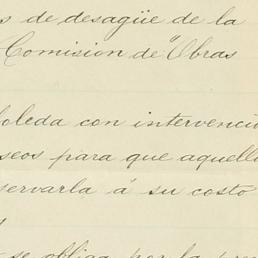 s de desagüe de la
Comision de "Obras
oleda con intervenci
seos para que aquell
servarla á su costo
se obliga por la